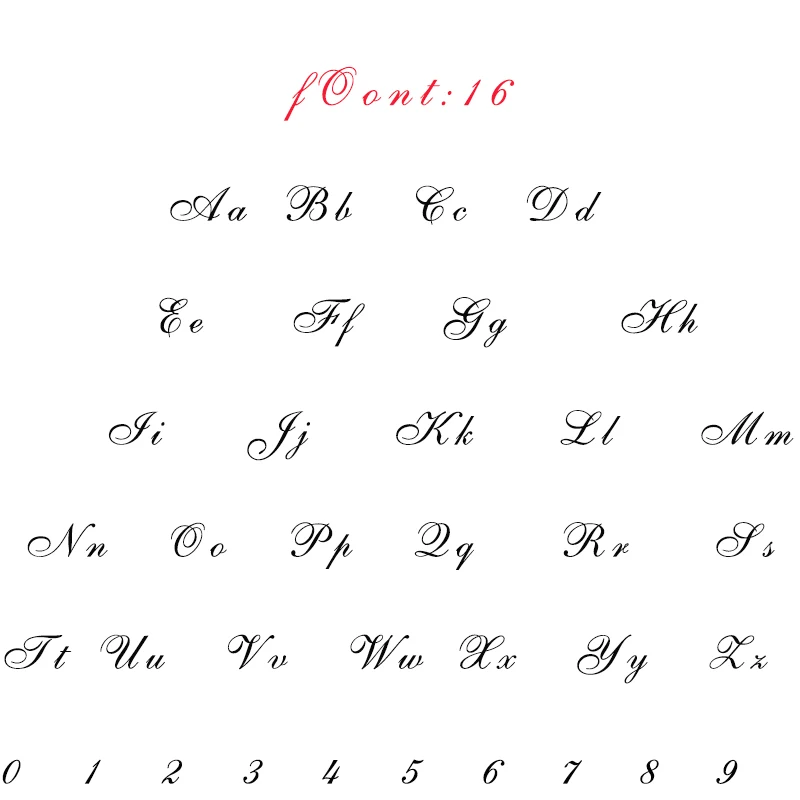 fOont:16
Aa Bb Cc Dd
Ee Ff Gg Hh
Ii Jj Kk Ll Mm
Nn Oo Pp Qq Rr Ss
Tt Uu Vv Ww Xx Yy Zz
0 1 2 3 4 5 6 7 8 9